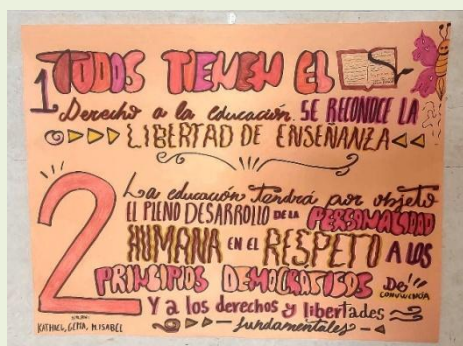 1 TODOS TIENEN EL
Derecho a la educación. SE RECONOCE LA
LIBERTAD DE ENSEÑANZA
2 La educación tendrá por objeto
EL PLENO DESARROLLO DE LA PERSONALIDAD
HUMANA EN EL RESPETO A LOS
PRINCIPIOS DEMOCRÁTICOS DE CONVIVENCIA
Y a los derechos y libertades
fundamentales
GEMA, M. ISABEL